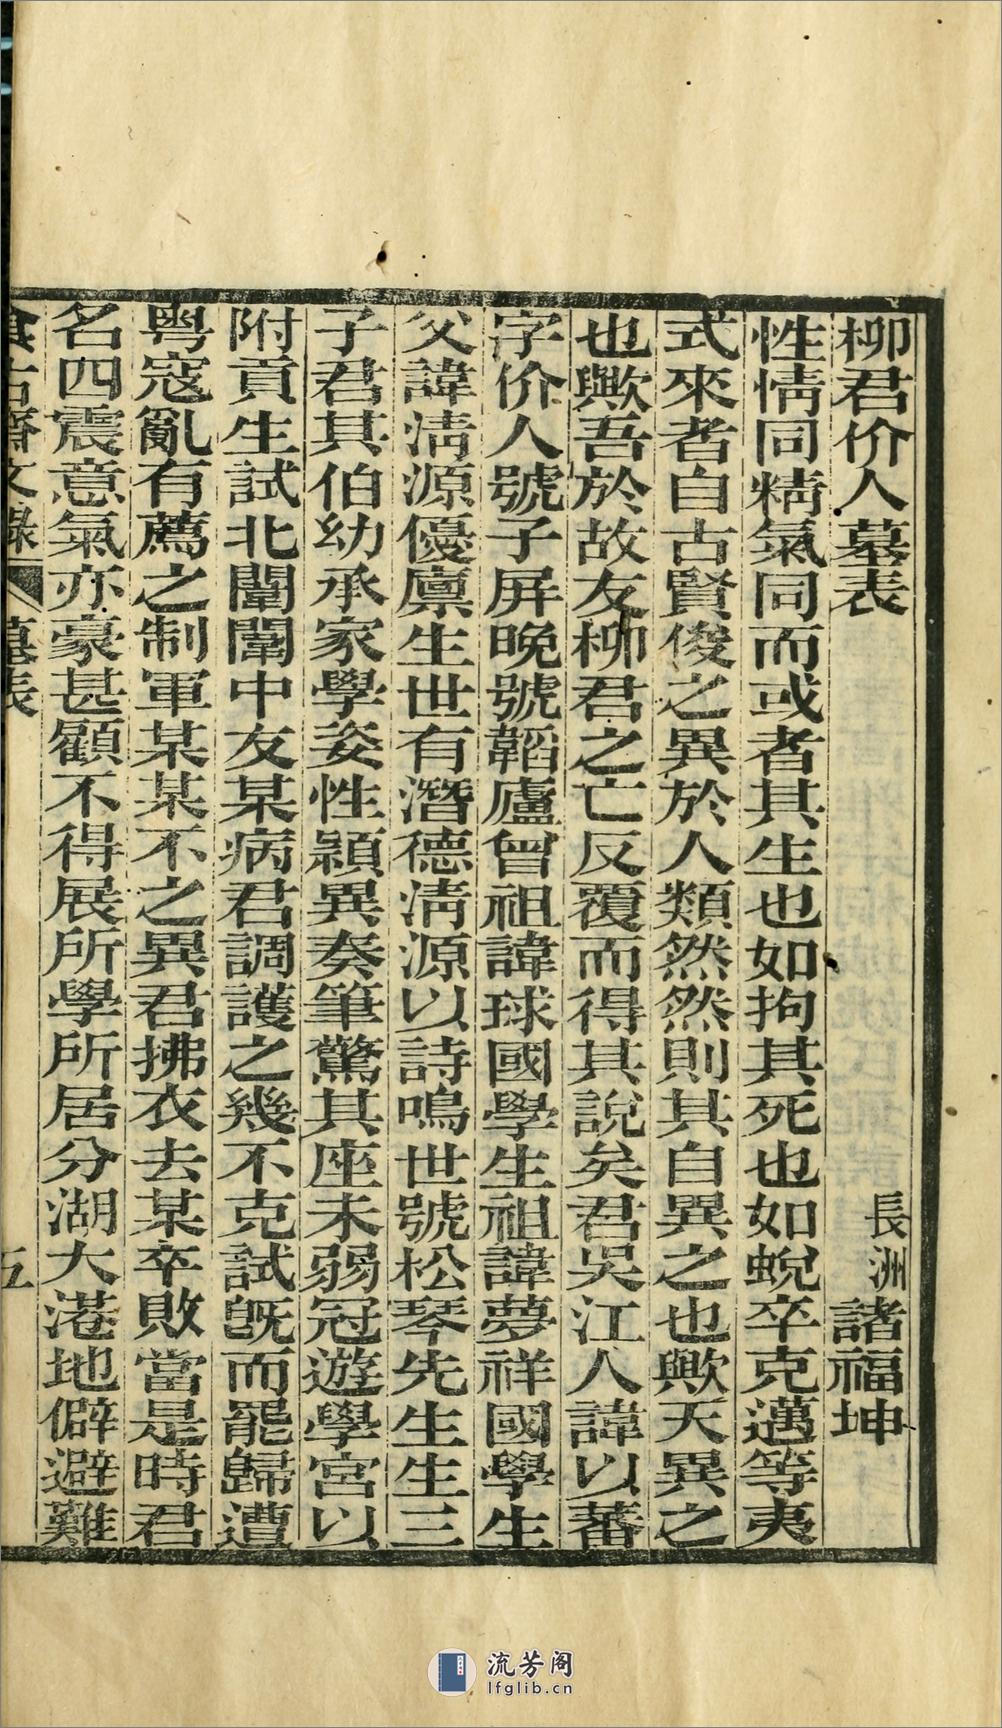 柳君价人墓表
長洲諸福坤
性情同精氣同而或者其生也如拘其死也如蛻卒克邁等夷
式來者自古賢俊之異於人類然然則其自異之也歟天異之
也歟吾於故友柳君之亡反覆而得其說矣君吳江人諱以蕃
字价人號子屏晚號韜廬曾祖諱球國學生祖諱夢祥國學生
父諱淸源優廩生世有潛德淸源以詩鳴世號松琴先生生三
子君其伯幼承家學姿性穎異奏筆驚其座未弱冠遊學宮以
附貢生試北闈闈中友某病君調護之幾不克試旣而罷歸遭
粵寇亂有薦之制軍某某不之異君拂衣去某卒敗當是時君
名四震意氣亦豪甚顧不得展所學所居分湖大港地僻避難
食古齋文錄 墓表 五
流芳阁
lfglib.cn